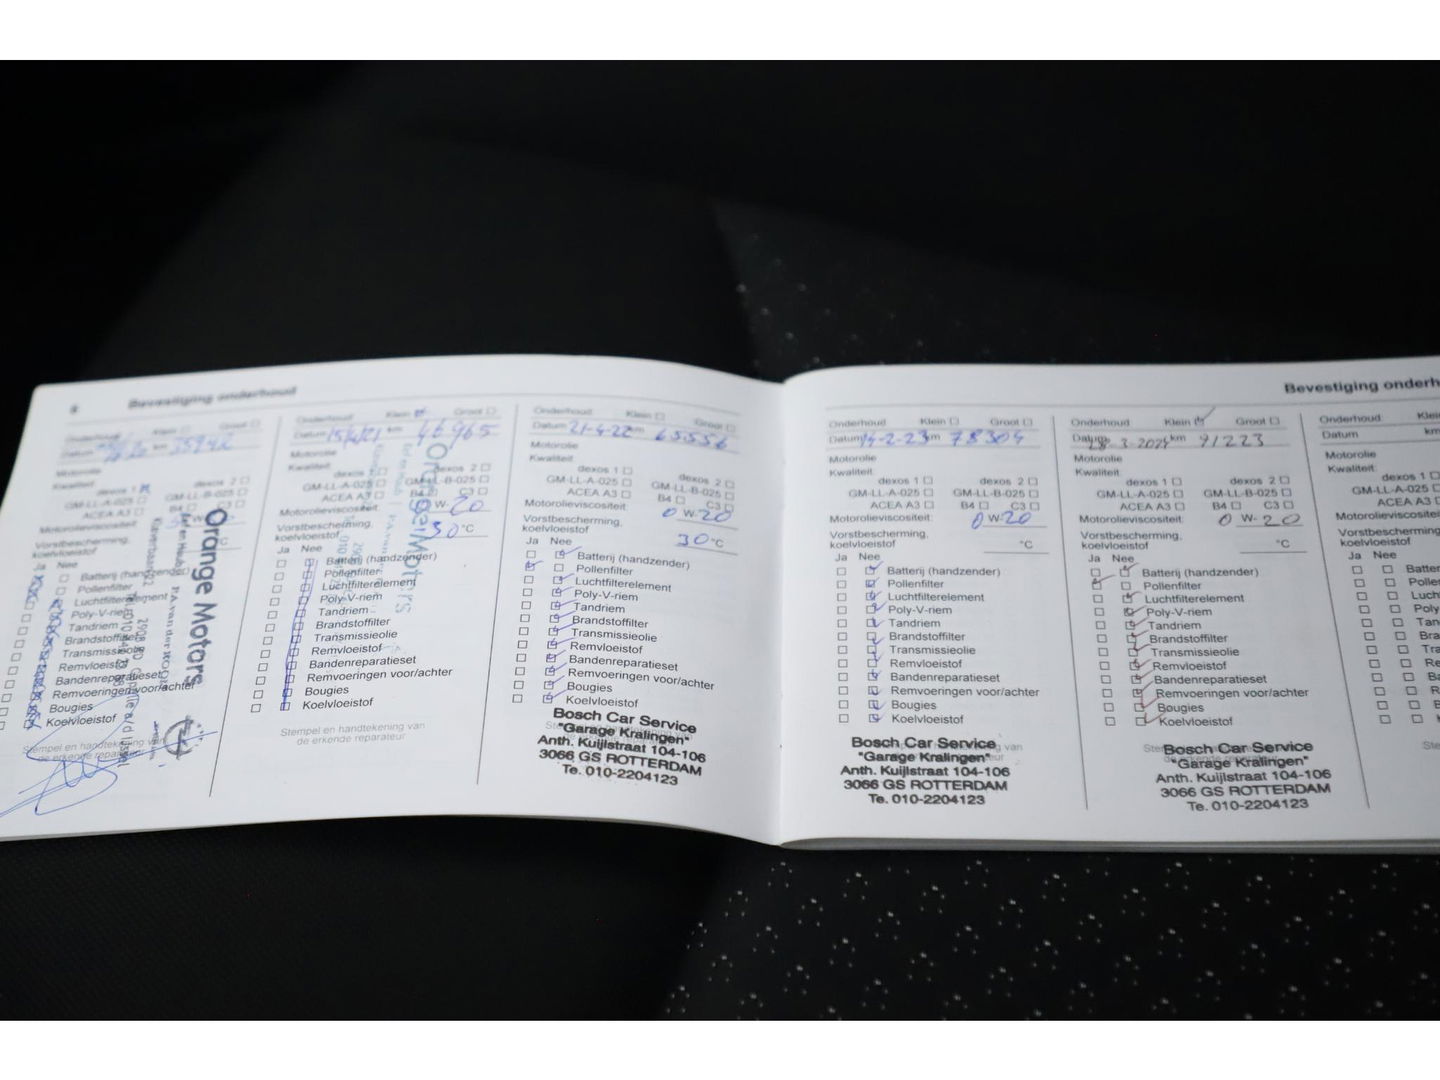 8 Bevestiging onderhoud
Onderhoud Klein Groot
Datum km 35942
Motorolie
Kwaliteit
dexos 1 dexos 2
GM-LL-A-025 GM-LL-B-025
ACEA A3 B4
Motorolieviscositeit
Vorstbescherming,
koelvloeistof °C
Ja Nee
Batterij (handzender)
Pollenfilter
Luchtfilterelement
Poly-V-riem
Tandriem
Brandstoffilter
Transmissieolie
Remvloeistof
Bandenreparatieset
Remvoeringen voor/achter
Bougies
Koelvloeistof
Stempel en handtekening van
de erkende reparateur
Orange Motors
Onderhoud Klein Groot
Datum km 46965
Motorolie
Kwaliteit
dexos 1 dexos 2
GM-LL-A-025 GM-LL-B-025
ACEA A3 B4 C3
Motorolieviscositeit W-20
Vorstbescherming,
koelvloeistof 30 °C
Ja Nee
Batterij (handzender)
Pollenfilter
Luchtfilterelement
Poly-V-riem
Tandriem
Brandstoffilter
Transmissieolie
Remvloeistof
Bandenreparatieset
Remvoeringen voor/achter
Bougies
Koelvloeistof
Stempel en handtekening van
de erkende reparateur
Orange Motors
Onderhoud Klein Groot
Datum 21-4-22 km 65556
Motorolie
Kwaliteit
dexos 1 dexos 2
GM-LL-A-025 GM-LL-B-025
ACEA A3 B4 C3
Motorolieviscositeit 0 W-20
Vorstbescherming,
koelvloeistof 30 °C
Ja Nee
Batterij (handzender)
Pollenfilter
Luchtfilterelement
Poly-V-riem
Tandriem
Brandstoffilter
Transmissieolie
Remvloeistof
Bandenreparatieset
Remvoeringen voor/achter
Bougies
Koelvloeistof
Bosch Car Service
"Garage Kralingen"
Anth. Kuijlstraat 104-106
3066 GS ROTTERDAM
Te. 010-2204123
Bevestiging onderh
Onderhoud Klein Groot
Datum 14-2-23 km 78304
Motorolie
Kwaliteit:
dexos 1 dexos 2
GM-LL-A-025 GM-LL-B-025
ACEA A3 B4 C3
Motorolieviscositeit: 0 W-20
Vorstbescherming,
koelvloeistof °C
Ja Nee
Batterij (handzender)
Pollenfilter
Luchtfilterelement
Poly-V-riem
Tandriem
Brandstoffilter
Transmissieolie
Remvloeistof
Bandenreparatieset
Remvoeringen voor/achter
Bougies
Koelvloeistof
Bosch Car Service
"Garage Kralingen"
Anth. Kuijlstraat 104-106
3066 GS ROTTERDAM
Te. 010-2204123
Onderhoud Klein Groot
Datum 28-3-2024 km 91223
Motorolie
Kwaliteit:
dexos 1 dexos 2
GM-LL-A-025 GM-LL-B-025
ACEA A3 B4 C3
Motorolieviscositeit: 0 W-20
Vorstbescherming,
koelvloeistof °C
Ja Nee
Batterij (handzender)
Pollenfilter
Luchtfilterelement
Poly-V-riem
Tandriem
Brandstoffilter
Transmissieolie
Remvloeistof
Bandenreparatieset
Remvoeringen voor/achter
Bougies
Koelvloeistof
Bosch Car Service
"Garage Kralingen"
Anth. Kuijlstraat 104-106
3066 GS ROTTERDAM
Te. 010-2204123
Onderhoud Klei
Datum km
Motorolie
Kwaliteit:
dexos 1
GM-LL-A-025
ACEA A3
Motorolieviscositeit
Vorstbescherming,
koelvloeistof
Ja Nee
Batter
Pollen
Lucht
Poly-
Tan
Bra
Tra
Re
Ba
R
B
K